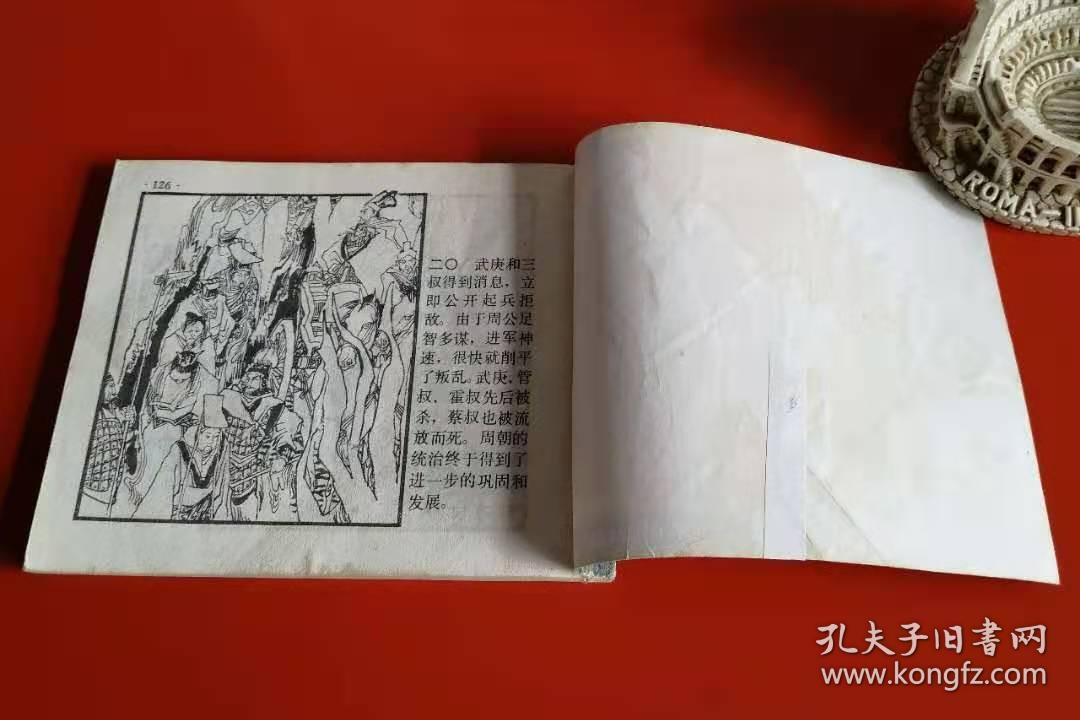 ·126·
二〇 武庚和三
叔得到消息，立
即公开起兵拒
敌。由于周公足
智多谋，进军神
速，很快就削平
了叛乱。武庚、管
叔、霍叔先后被
杀，蔡叔也被流
放而死。周朝的
统治终于得到了
进一步的巩固和
发展。
ROMA-I
孔夫子旧书网
www.kongfz.com